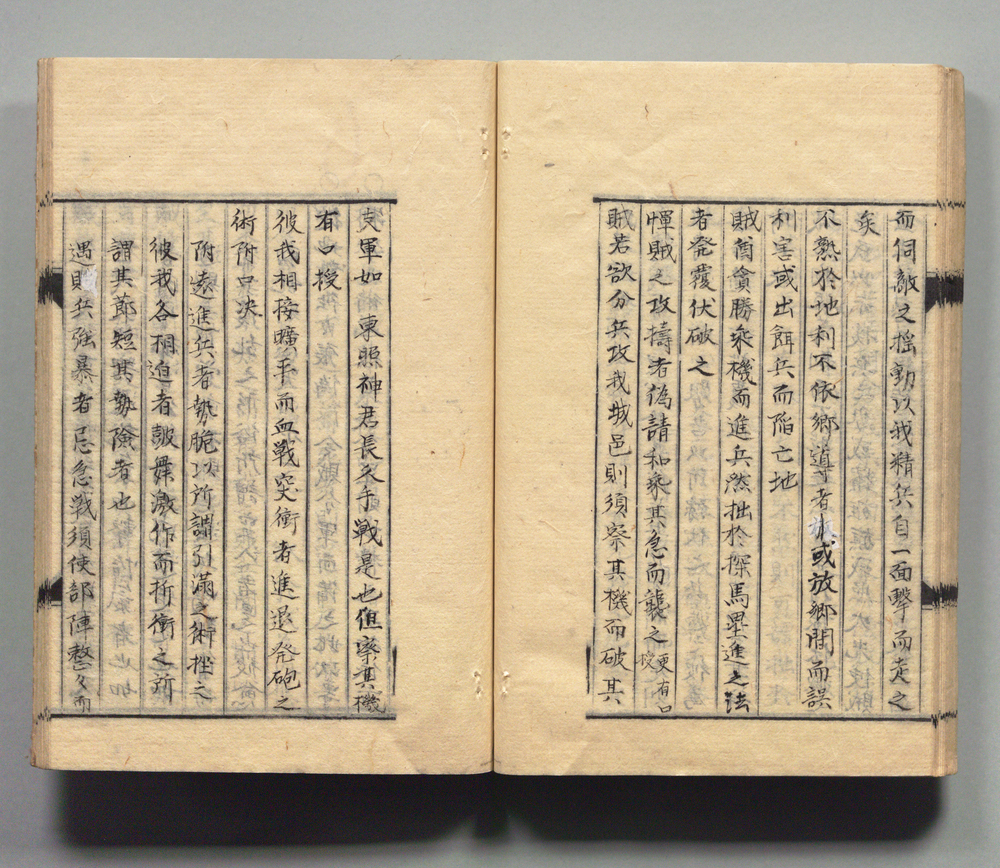 而伺敵之揺動以我精兵自一面擊而走之
矣
不熟於地利不依鄉導者或放鄉間而誤
利害或出餌兵而陥亡地
賊酋貪勝乘機而進兵然拙於探馬壘進之法
者発覆伏破之
惲賊之攻擣者偽請和乘其怠而襲之更有口授
賊若欲分兵攻我城邑則須察其機而破其
支軍如 東照神君長久手戰是也但察其機
有口授
彼我相接曠乎而血戰突衝者進退発砲之
術附口决
附遠進兵者勢脆以所謂引滿之術挫之
彼我各相迫者皷舞激作而折衝之所
謂其節短其勢險者也
遇賊兵強暴者忌急戰須使部陣整々而